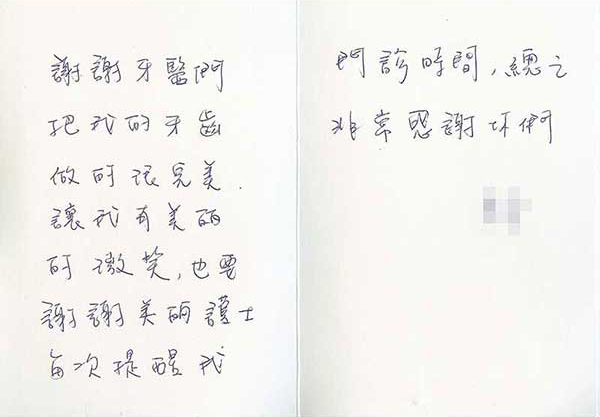 謝謝牙醫們
把我的牙齒
做的很完美.
讓我有美丽
的微笑,也要
謝謝美丽護士
每次提醒我
門診時間,總之
非常感謝你們